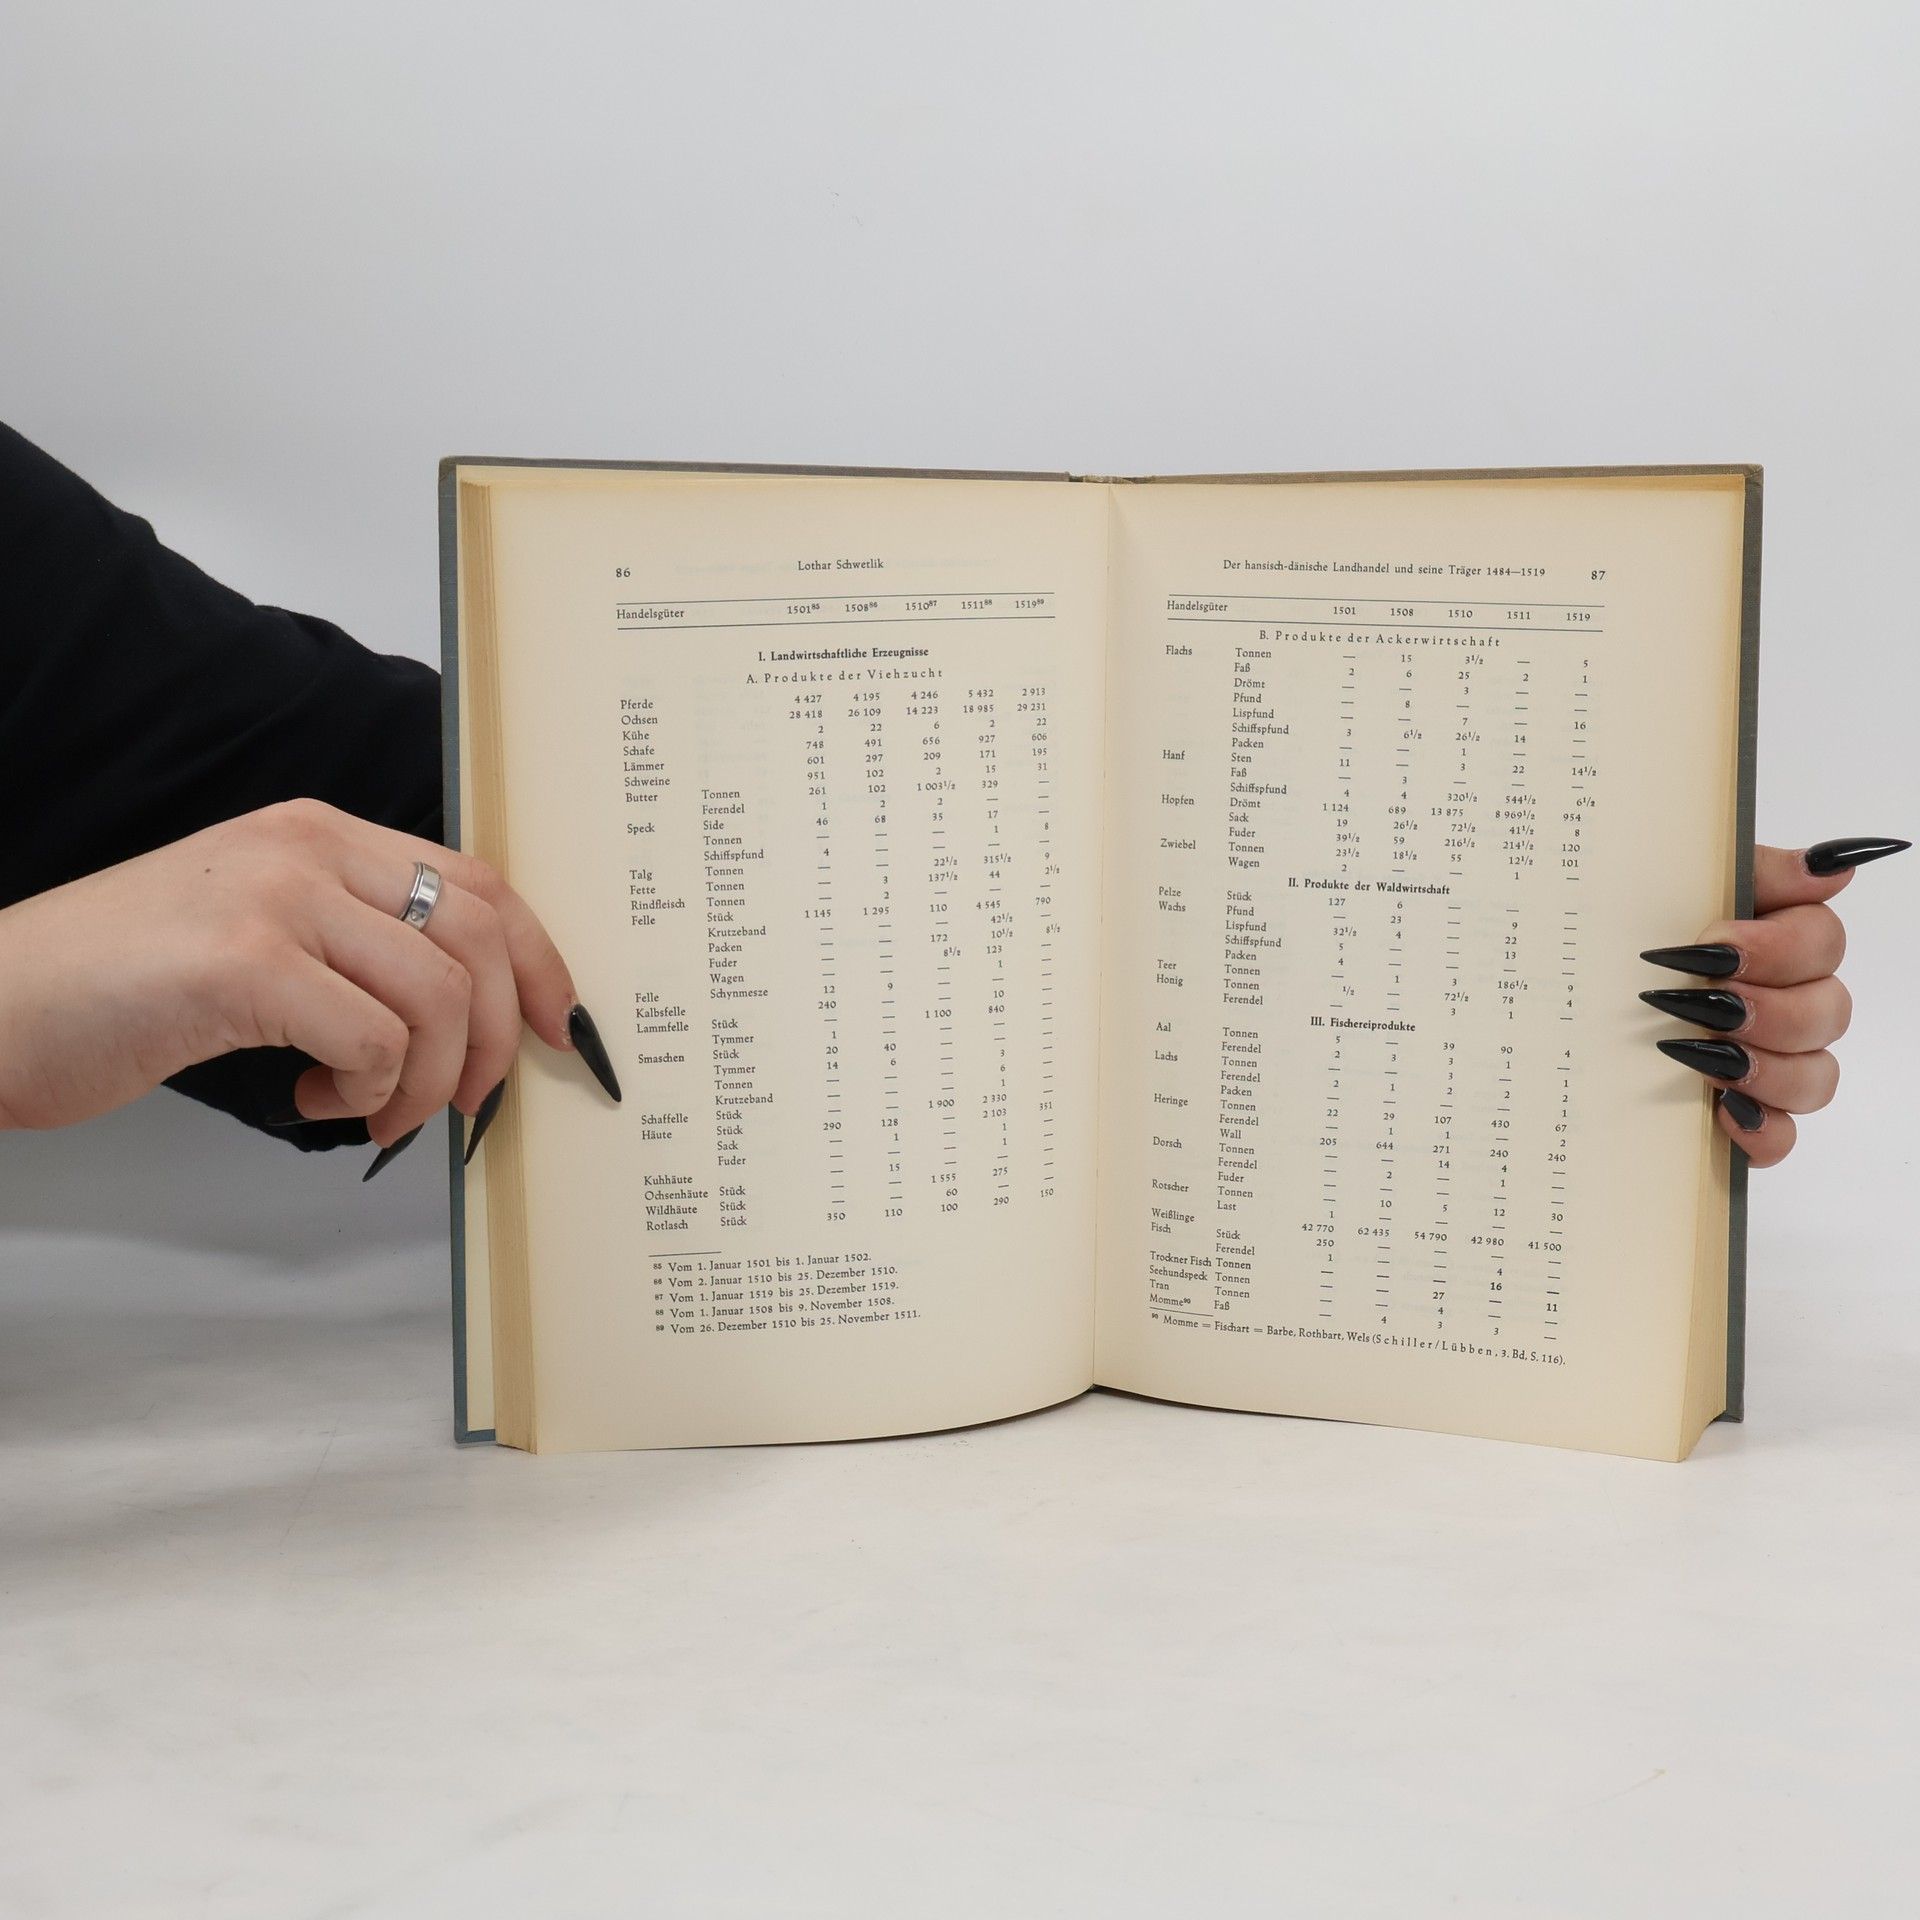 86 Lothar Schwetlik
Handelsgüter 1501⁸⁵ 1508⁸⁶ 1510⁸⁷ 1511⁸⁸ 1519⁸⁹
I. Landwirtschaftliche Erzeugnisse
A. Produkte der Viehzucht
Pferde 4 427 4 195 4 246 5 432 2 913
Ochsen 28 418 26 109 14 223 18 985 29 231
Kühe 2 22 6 2 22
Schafe 748 491 656 927 606
Lämmer 601 297 209 171 195
Schweine 951 102 2 15 31
Butter Tonnen 261 102 1 003½ 329 —
Ferendel 1 2 2 — —
Speck Side 46 68 35 17 —
Tonnen — — — 1 8
Schiffspfund 4 — — — —
Talg Tonnen — — 22½ 315½ 9
Fette Tonnen — 3 137½ 44 2½
Rindfleisch Tonnen — 2 — — —
Felle Stück 1 145 1 295 110 4 545 790
Krutzeband — — — 42½ —
Packen — — 172 10½ 8½
Fuder — — 8½ 123 —
Wagen — — — 1 —
Felle Schynmesze 12 9 — — —
Kalbsfelle 240 — — 10 —
Lammfelle Stück — — 1 100 840 —
Tymmer 1 — — — —
Smaschen Stück 20 40 — — —
Tymmer 14 6 — 3 —
Tonnen — — — 6 —
Krutzeband — — — 1 —
Schaffelle Stück — — 1 900 2 330 —
Häute Stück 290 128 — 2 103 351
Sack — 1 — 1 —
Fuder — — — 1 —
Kuhhäute — 15 — — —
Ochsenhäute Stück — — 1 555 275 —
Wildhäute Stück — — 60 — —
Rotlasch Stück 350 110 100 290 150
⁸⁵ Vom 1. Januar 1501 bis 1. Januar 1502.
⁸⁶ Vom 2. Januar 1510 bis 25. Dezember 1510.
⁸⁷ Vom 1. Januar 1519 bis 25. Dezember 1519.
⁸⁸ Vom 1. Januar 1508 bis 9. November 1508.
⁸⁹ Vom 26. Dezember 1510 bis 25. November 1511.
Der hansisch-dänische Landhandel und seine Träger 1484—1519 87
Handelsgüter 1501 1508 1510 1511 1519
B. Produkte der Ackerwirtschaft
Flachs Tonnen — 15 3½ — 5
Faß 2 6 25 2 1
Drömt — — 3 — —
Pfund — 8 — — —
Lispfund — — 7 — 16
Schiffspfund 3 6½ 26½ 14 —
Packen — — 1 — —
Hanf Sten 11 — 3 22 14½
Faß — 3 — — —
Schiffspfund 4 4 320½ 544½ 6½
Hopfen Drömt 1 124 689 13 875 8 969½ 954
Sack 19 26½ 72½ 41½ 8
Fuder 39½ 59 216½ 214½ 120
Zwiebel Tonnen 23½ 18½ 55 12½ 101
Wagen 2 — — 1 —
II. Produkte der Waldwirtschaft
Pelze Stück 127 6 — — —
Wachs Pfund — 23 — 9 —
Lispfund 32½ 4 — 22 —
Schiffspfund 5 — — 13 —
Packen 4 — — — —
Teer Tonnen — 1 3 186½ 9
Honig Tonnen ½ — 72½ 78 4
Ferendel — — 3 1 —
III. Fischereiprodukte
Aal Tonnen 5 — 39 90 4
Ferendel 2 3 3 1 —
Lachs Tonnen — — 3 — 1
Ferendel 2 1 2 2 2
Packen — — — — 1
Heringe Tonnen 22 29 107 430 67
Ferendel — 1 1 — 2
Wall 205 644 271 240 240
Dorsch Tonnen — — 14 4 —
Ferendel — 2 — 1 —
Fuder — — — — —
Rotscher Tonnen — 10 5 12 30
Last 1 — — — —
Weißlinge
Fisch Stück 42 770 62 435 54 790 42 980 41 500
Ferendel 250 — — — —
Trockner Fisch Tonnen 1 — — 4 —
Seehundspeck Tonnen — — — 16 —
Tran Tonnen — — 27 — 11
Momme⁹⁰ Faß — — 4
— 4 3 3 —
⁹⁰ Momme = Fischart = Barbe, Rothbart, Wels (Schiller/Lübben, 3. Bd, S. 116).